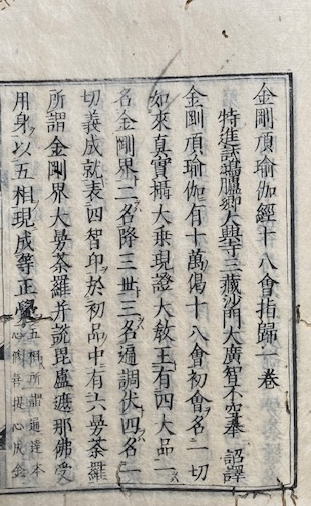 金剛頂瑜伽經十八會指歸一卷
特進試鴻臚卿大興寺三藏沙門大廣智不空奉 詔譯
金剛頂瑜伽有十萬偈十八會初會名一切
如來真實攝大乘現證大教王有四大品一
名金剛界二名降三世三名遍調伏四名一
切義成就表四智印於初品中有六曼荼羅
所謂金剛界大曼荼羅并說毘盧遮那佛受
用身以五相現成等正覺五相所謂通達本
心修菩提心成金